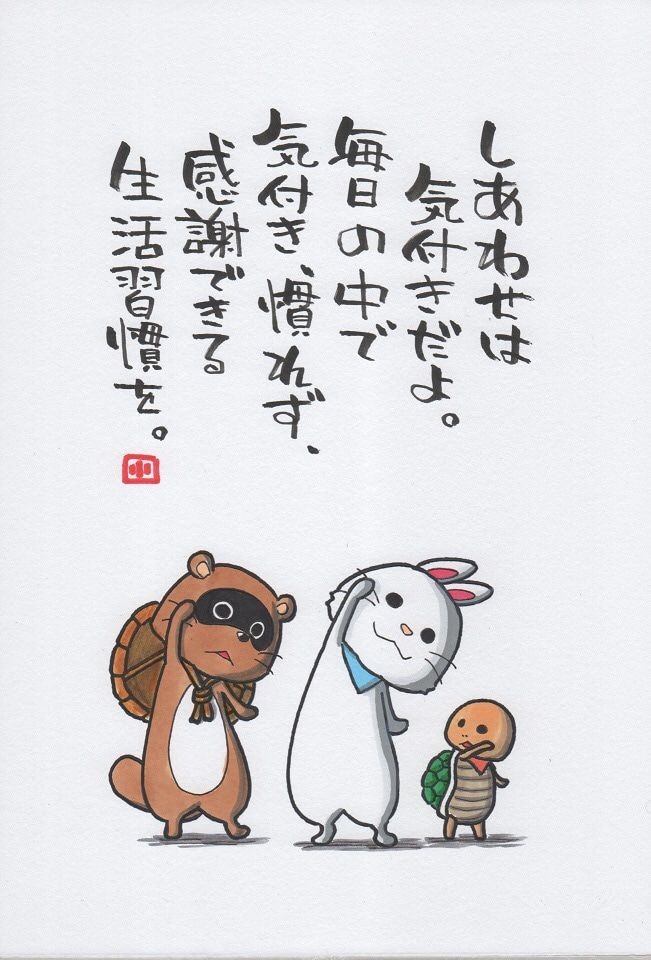 しあわせは
気付きだよ。
毎日の中で
気付き、慣れず、
感謝できる
生活習慣を。